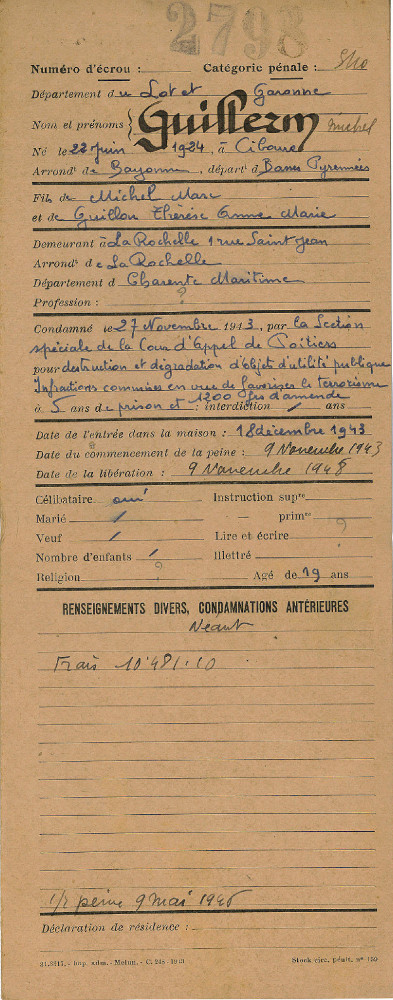 2798
Numéro d'écrou : Catégorie pénale :
Département du Lot et Garonne
Nom et prénoms } Guillerm Michel
Né le 22 Juin 1924, à Ciboure
Arrond. de Bayonne, départ. d Basses Pyrennées
Fils de Michel Marc
et de Guillou Thérèse Anne Marie
Demeurant à La Rochelle 1 rue Saint Jean
Arrondt de La Rochelle
Département d Charente Maritime
Profession : ?
Condamné le 27 Novembre 1943, par la Section
spéciale de la Cour d'Appel de Poitiers
pour destruction et dégradation d'objets d'utilité publique
Infractions commises en vue de favoriser le terrorisme
à 5 ans de prison et 1200 frs d'amende : interdiction / ans
Date de l'entrée dans la maison : 18 décembre 1943
Date du commencement de la peine : 9 Novembre 1943
Date de la libération : 9 Novembre 1948
Célibataire oui Instruction supre
Marié / — primre ?
Veuf / Lire et écrire
Nombre d'enfants / Illettré
Religion ? Agé de 19 ans
RENSEIGNEMENTS DIVERS, CONDAMNATIONS ANTÉRIEURES
Néant
Frais 10481.10
1/2 peine 9 mai 1946
Déclaration de résidence :
31.3315. - Imp. adm. - Melun. - C. 248 - 1943 Stock circ. pénit. n° 150